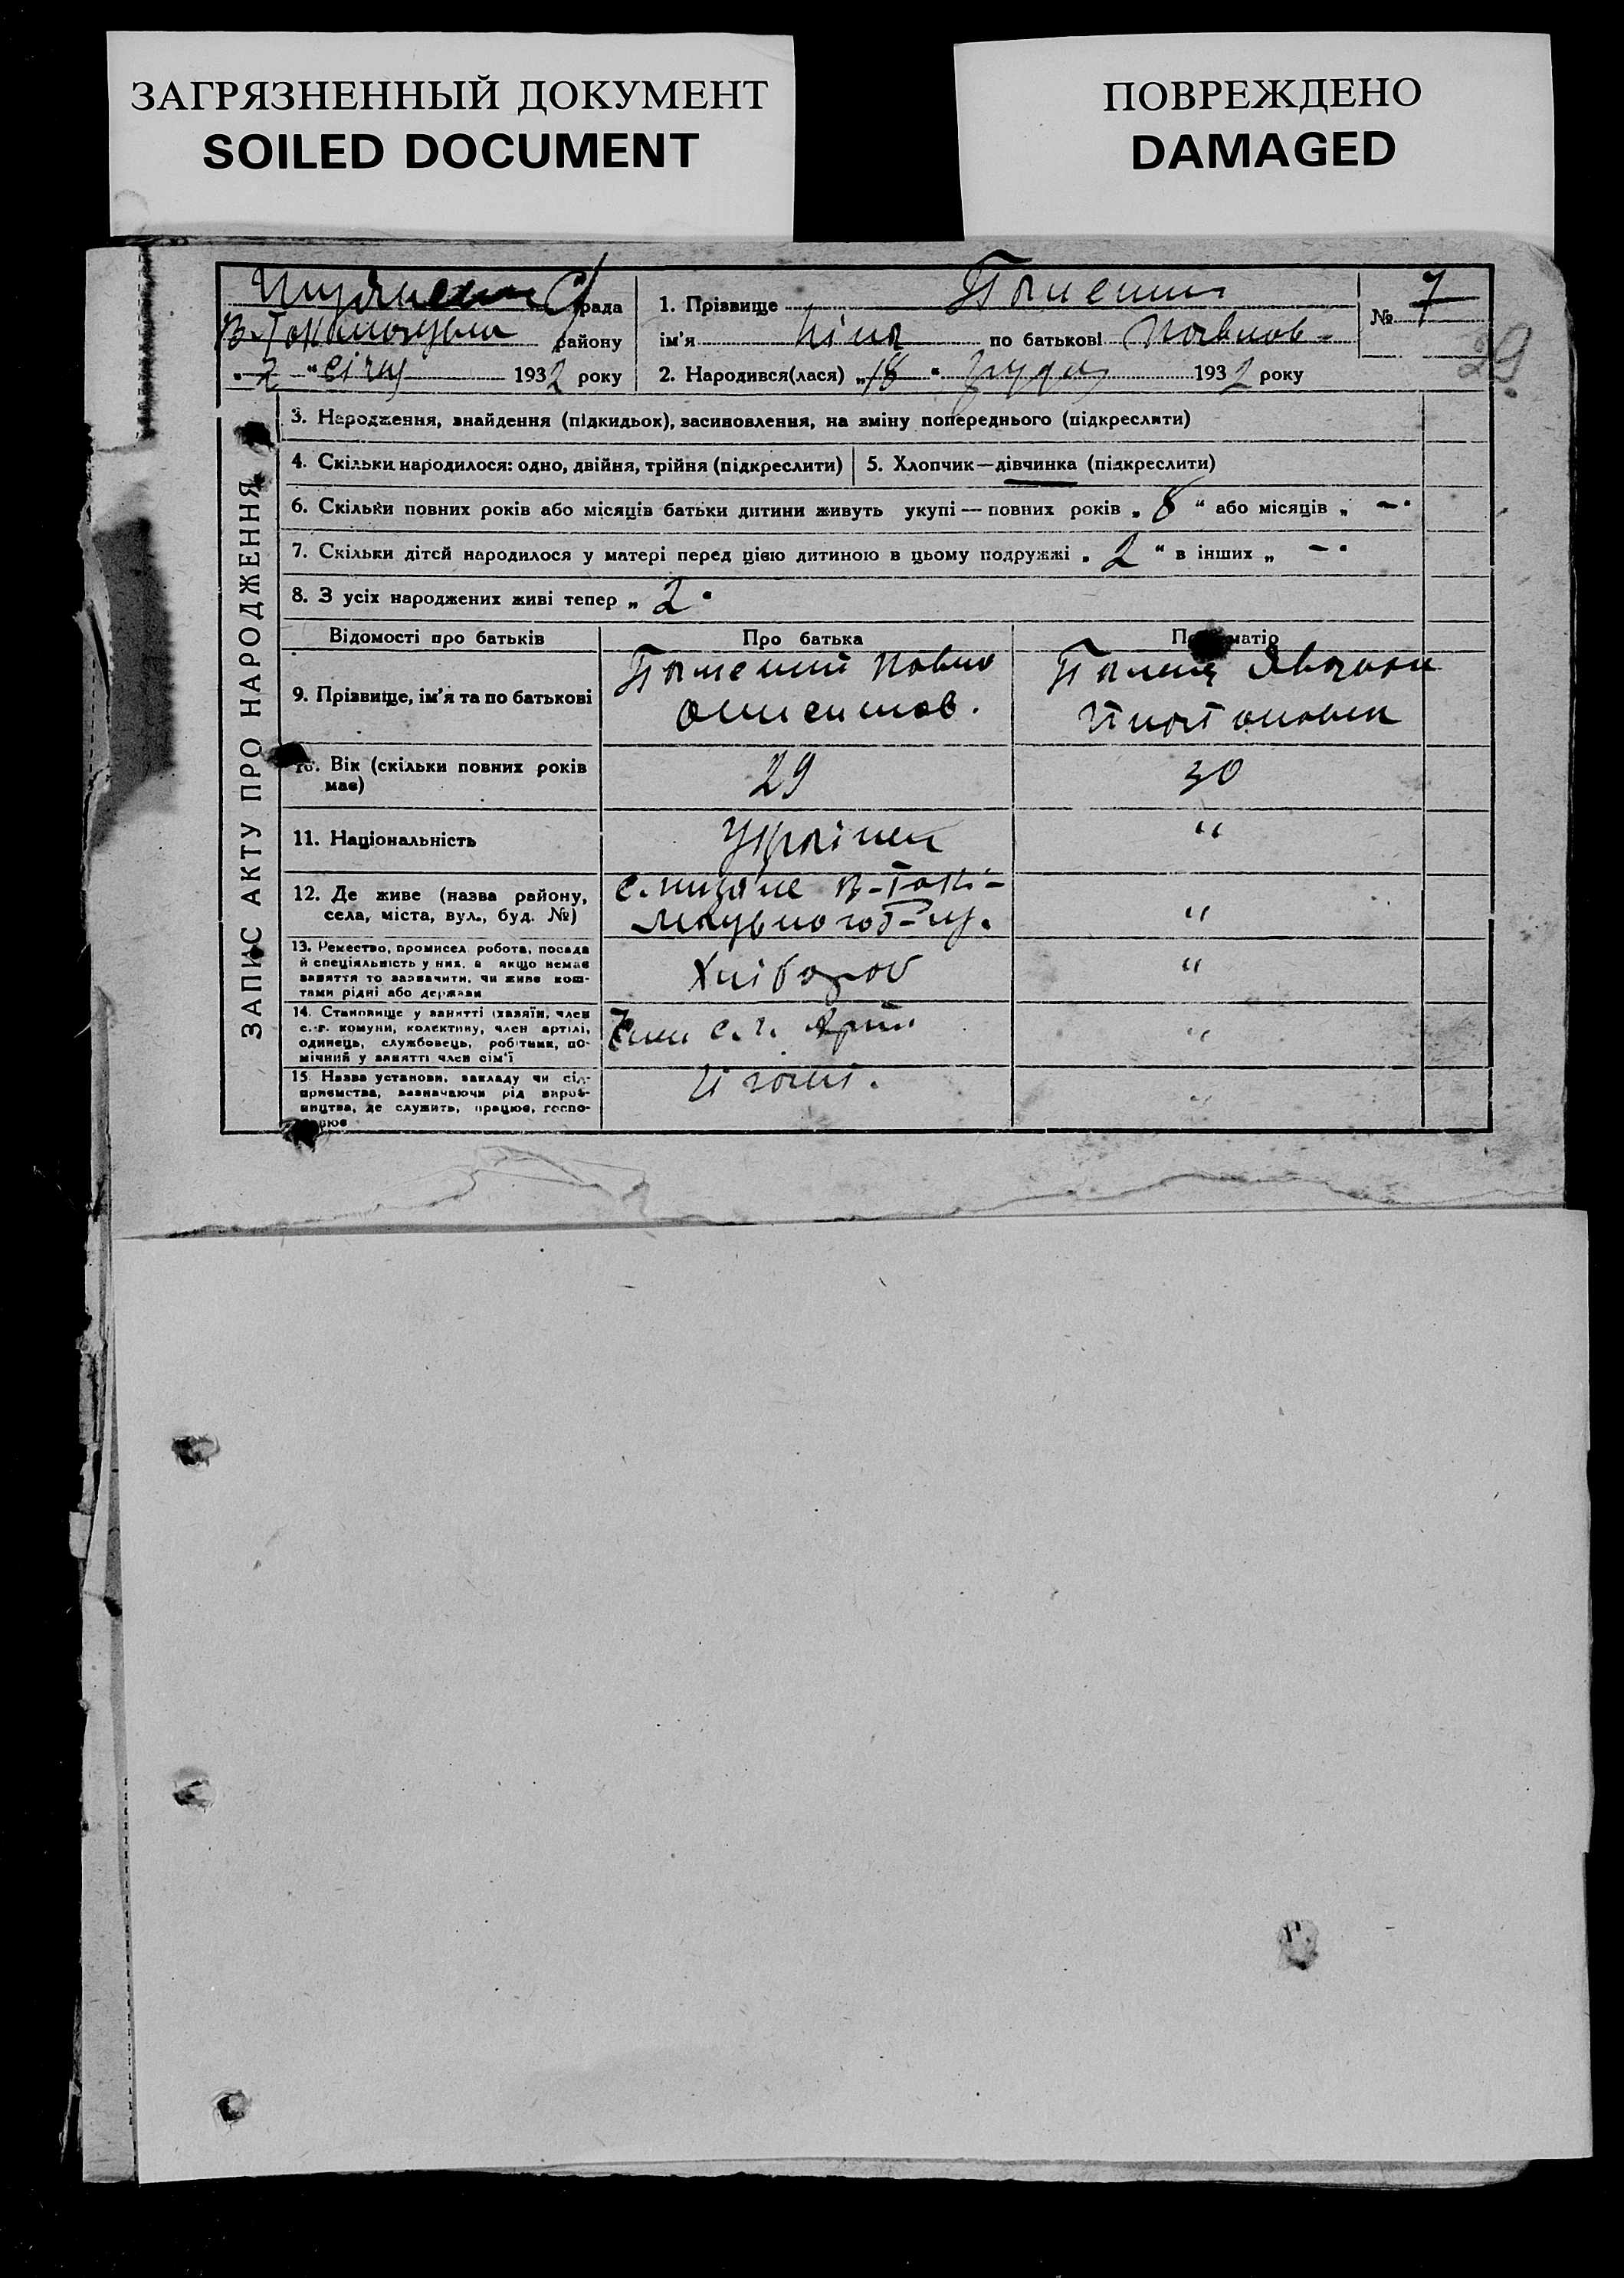 ЗАГРЯЗНЕННЫЙ ДОКУМЕНТ
SOILED DOCUMENT
ПОВРЕЖДЕНО
DAMAGED
рада
В-Токмацьк району
"2" січн 1932 року
1. Прізвище
ім'я Ніна по батькові Павлов-
2. Народився(лася) "18" грудн 1932 року
№ 7
29
ЗАПИС АКТУ ПРО НАРОДЖЕННЯ
3. Народження, знайдення (підкидьок), засиновлення, на зміну попереднього (підкреслити)
4. Скільки народилося: одно, двійня, трійня (підкреслити)
5. Хлопчик—дівчинка (підкреслити)
6. Скільки повних років або місяців батьки дитини живуть укупі — повних років „ 8 “ або місяців „ – “
7. Скільки дітей народилося у матері перед цією дитиною в цьому подружжі „ 2 “ в інших „ – “
8. З усіх народжених живі тепер „ 2 “
Відомості про батьків
Про батька
Про матір
9. Прізвище, ім'я та по батькові
Павло
10. Вік (скільки повних років має)
29
30
11. Національність
Українец
"
12. Де живе (назва району, села, міста, вул., буд. №)
"
13. Ремество, промисел, робота, посада й спеціяльність у них, а якщо немає заняття то зазначити, чи живе коштами рідні або держави
Хлібороб
"
14. Становище у занятті (хазяїн, член с.-г. комуни, колективу, член артілі, одинець, службовець, робітник, помічний у занятті член сім'ї
Член с. г. Арт.
"
15. Назва установи, закладу чи підприємства, зазначаючи рід виробництва, де служить, працює, господарює
"